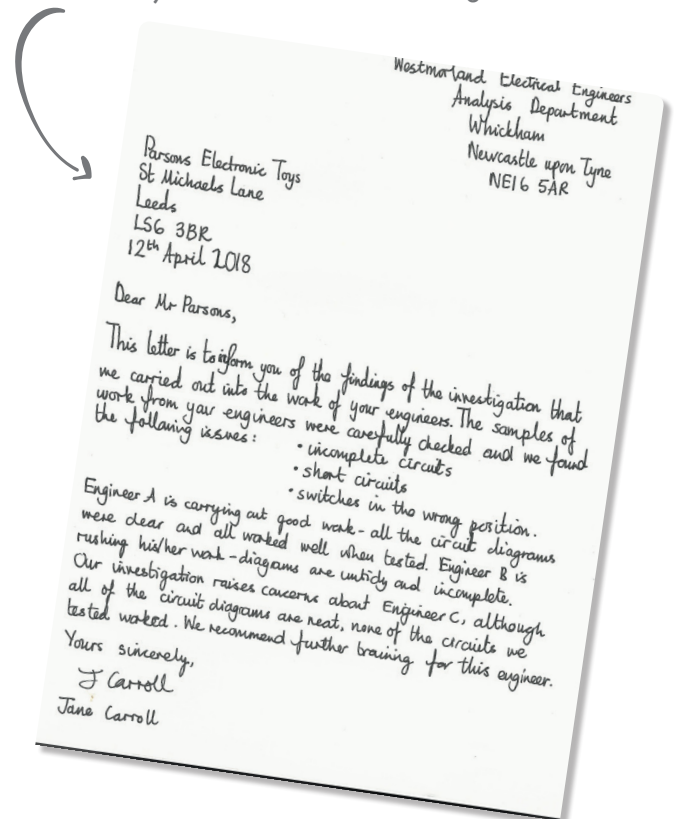 Westmorland Electrical Engineers
Analysis Department
Whickham
Newcastle upon Tyne
NE16 5AR
Parsons Electronic Toys
St Michaels Lane
Leeds
LS6 3BR
12th April 2018
Dear Mr Parsons,
This letter is to inform you of the findings of the investigation that
we carried out into the work of your engineers. The samples of
work from your engineers were carefully checked and we found
the following issues:
• incomplete circuits
• short circuits
• switches in the wrong position.
Engineer A is carrying out good work - all the circuit diagrams
were clear and all worked well when tested. Engineer B is
rushing his/her work - diagrams are untidy and incomplete.
Our investigation raises concerns about Engineer C, although
all of the circuit diagrams are neat, none of the circuits we
tested worked. We recommend further training for this engineer.
Yours sincerely,
J Carroll
Jane Carroll